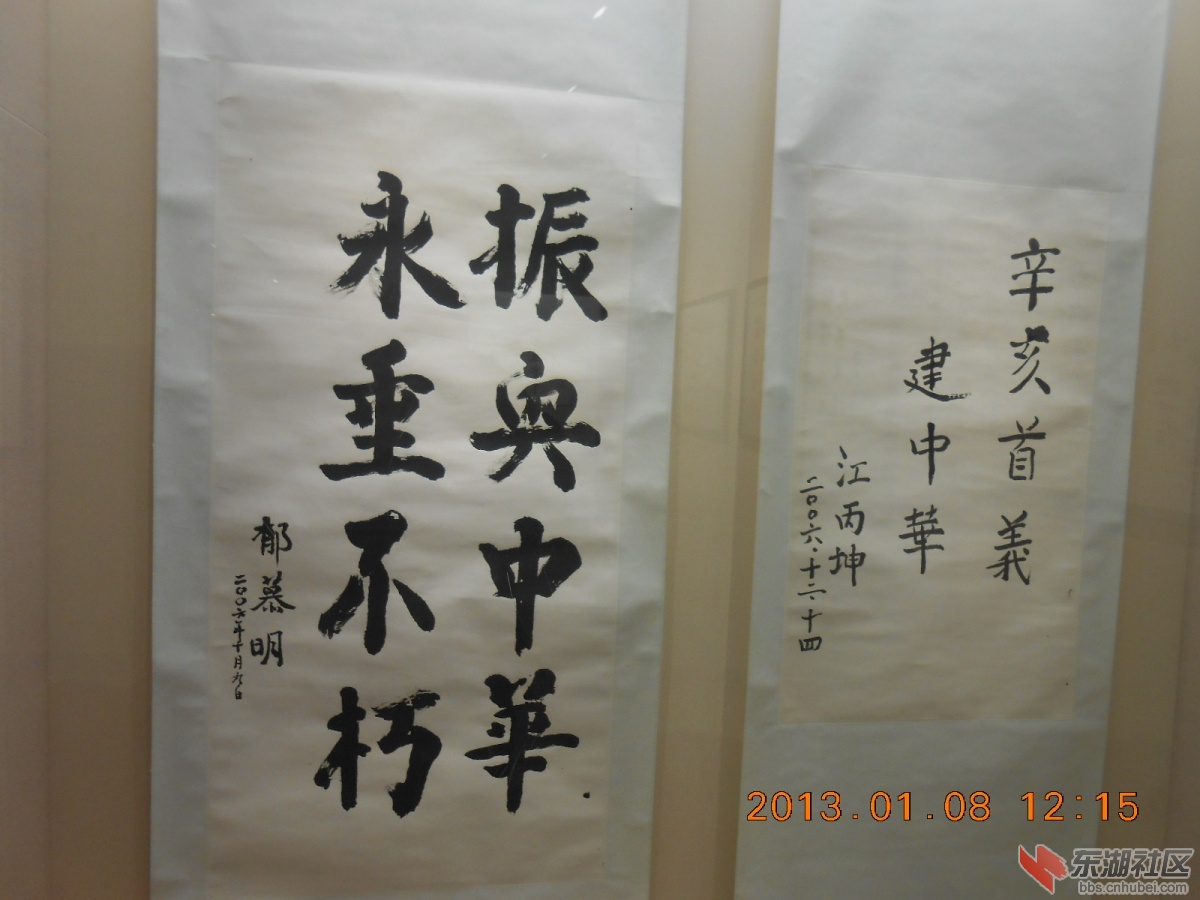 辛亥首義
建中華
江丙坤
二〇〇六·十二·十四
振興中華
永垂不朽
郁慕明
二〇〇六年十月九日
2013.01.08 12:15
东湖社区
bbs.cnhubei.com